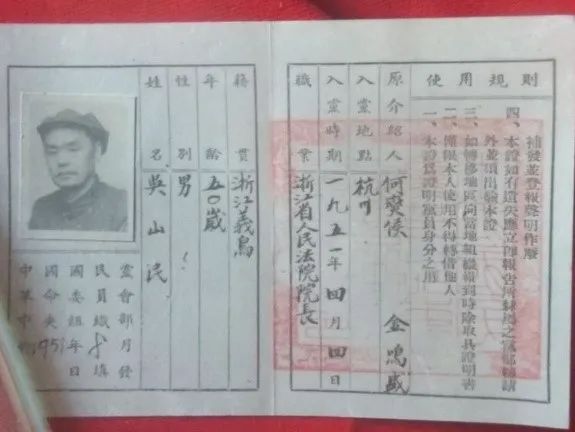 中國國民黨
革命委員會
中央組織部
年 月
日填發
姓名 吳山民
性別 男
年齡 五〇歲
籍貫 浙江義烏
職業 浙江省人民法院院長
入黨時期 一九五一年四月四日
入黨地點 杭州
原介紹人 何燮侯 金鳴盛
使用規則
一、本證爲證明黨員身分之用
二、僅限本人使用不得轉借他人
三、如轉移地區向當地組織報到時除取具證明書
外並須出驗本證
四、本證如有遺失應立即報告所隸屬之黨部轉請
補發並登報聲明作廢